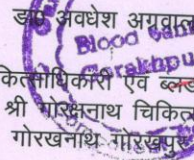 डा० अवधेश अग्रवाल
Blood Bank
Gorakhpur
कित्साधिकारी एवं ब्लड
श्री गोरक्षनाथ चिकित्
गोरखनाथ गोरखपुर